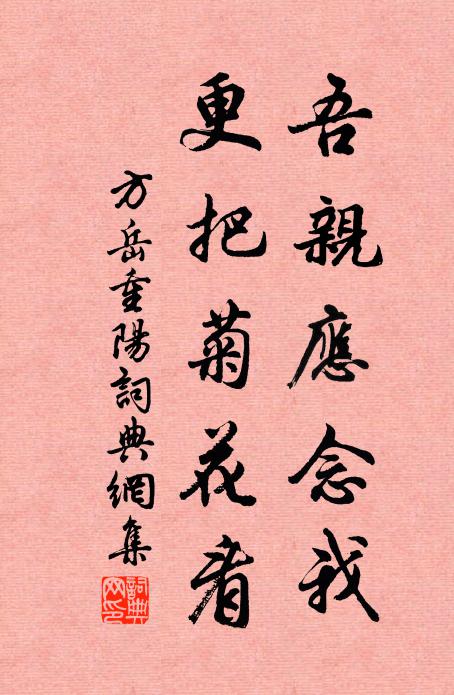 吾親應念我
更把菊花看
方岳重陽詞典網集
詞典網印